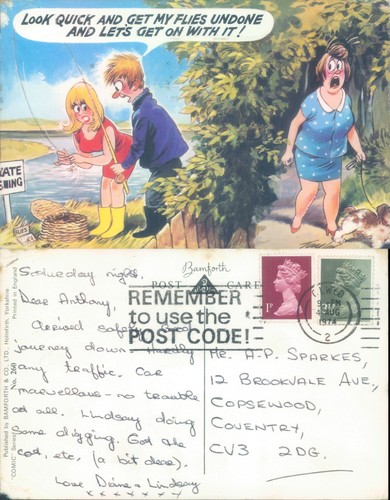 LOOK QUICK AND GET MY FLIES UNDONE
AND LET'S GET ON WITH IT!
FLIES
Published by BAMFORTH & CO., LTD., Holmfirth, Yorkshire
Printed in England
"COMIC" Series No. 260
Bamforth
POST CARD
REMEMBER
to use the
POST CODE!
1P
4 AUG
1974
2
Saturday night.
Dear Anthony,
Arrived safely. Good
journey down. Hardly
any traffic. Car
marvellous - no trouble
at all. Lindsay doing
some digging. Got the
cot, etc, (a bit dear).
Love Diane & Lindsay
x x x x x x x
Mr. A.P. SPARKES,
12 BROOKVALE AVE,
COPSEWOOD,
COVENTRY,
CV3 2DG.